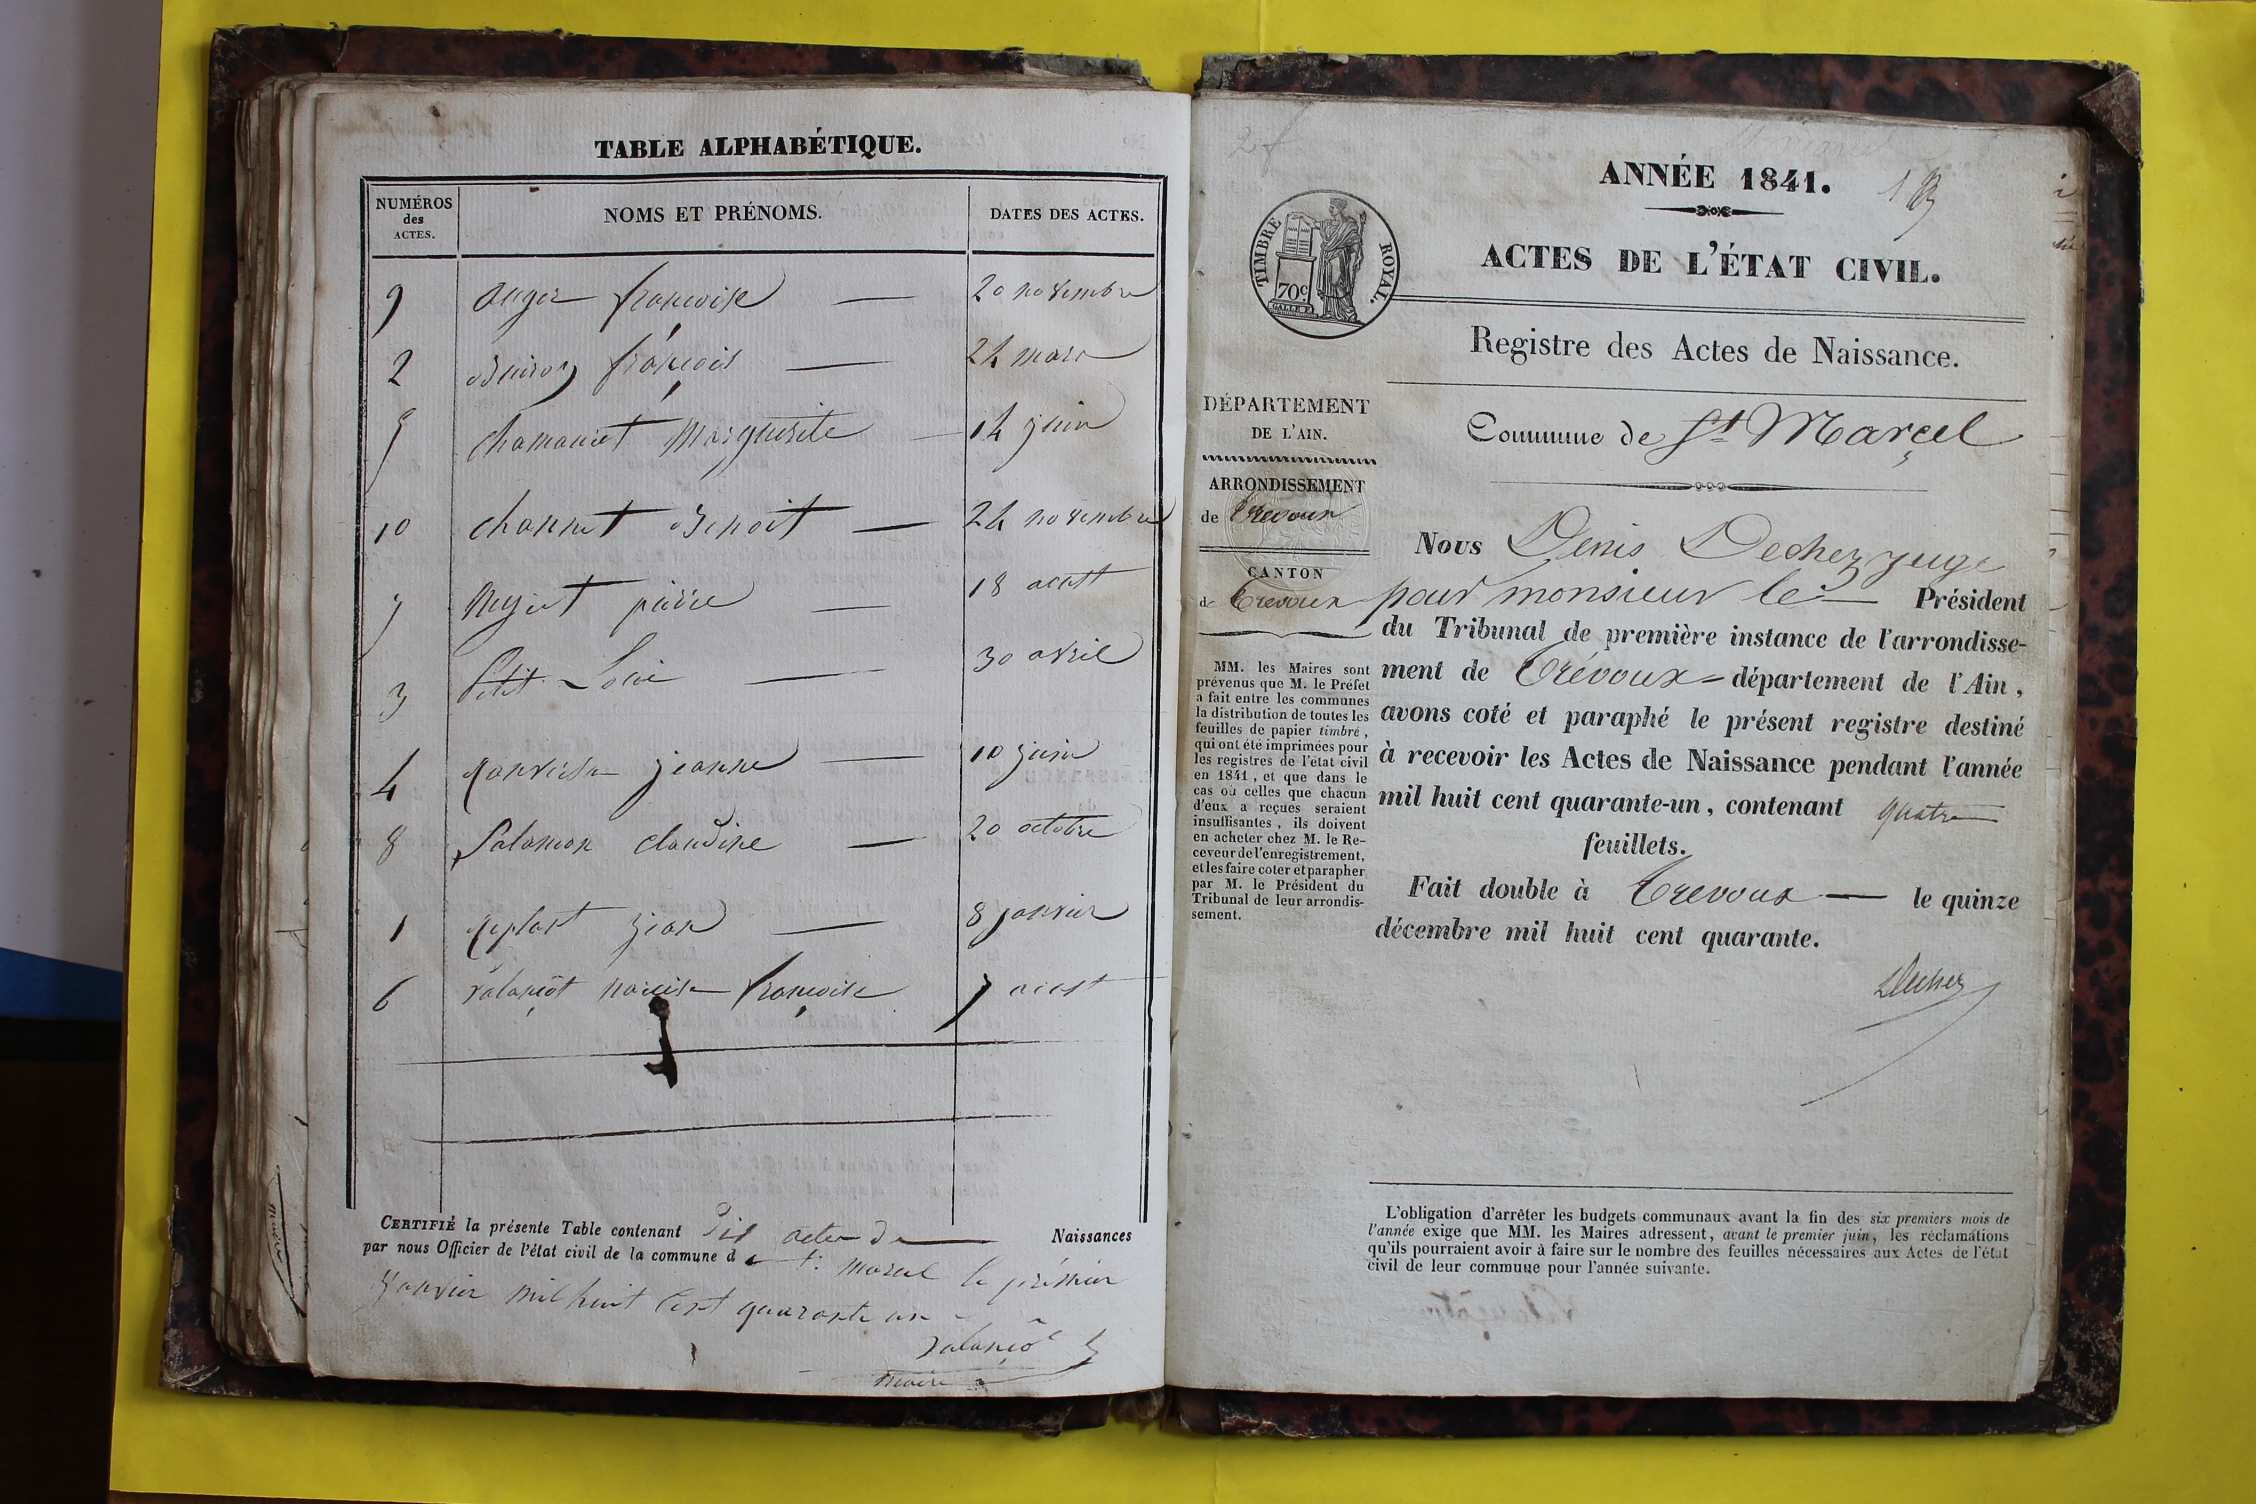 TABLE ALPHABÉTIQUE.
NUMÉROS
des
ACTES.
NOMS ET PRÉNOMS.
DATES DES ACTES.
9 auger françoise — 20 novembre
2 françois — 24 mars
chamanet Marguerite — 14 juin
10 channet Benoit — 24 novembre
7 pierre — 18 aout
3 Petit — 30 avril
4 jeanne — 10 juin
8 Salomon claudine — 20 octobre
1 jean — 8 janvier
6 Valançôt françoise 7 aout
CERTIFIÉ la présente Table contenant Dix actes de — Naissances
par nous Officier de l'état civil de la commune de St. Marcel le prémier
Janvier mil huit Cent quarante un
Valançôt
maire
ANNÉE 1841.
TIMBRE ROYAL.
70c
ACTES DE L'ÉTAT CIVIL.
Registre des Actes de Naissance.
Commune de St Marçel
DÉPARTEMENT
DE L'AIN.
ARRONDISSEMENT
de Trévoux
CANTON
de Trévoux
MM. les Maires sont
prévenus que M. le Préfet
a fait entre les communes
la distribution de toutes les
feuilles de papier timbré,
qui ont été imprimées pour
les registres de l'état civil
en 1841, et que dans le
cas où celles que chacun
d'eux a reçues seraient
insuffisantes, ils doivent
en acheter chez M. le Re-
ceveur de l'enregistrement,
et les faire coter et parapher
par M. le Président du
Tribunal de leur arrondis-
sement.
Nous Denis Dechez juge
pour monsieur le — Président
du Tribunal de première instance de l'arrondisse-
ment de Trévoux = département de l'Ain,
avons coté et paraphé le présent registre destiné
à recevoir les Actes de Naissance pendant l'année
mil huit cent quarante-un, contenant quatre
feuillets.
Fait double à Trevoux — le quinze
décembre mil huit cent quarante.
Dechez
L'obligation d'arrêter les budgets communaux avant la fin des six premiers mois de
l'année exige que MM. les Maires adressent, avant le premier juin, les réclamations
qu'ils pourraient avoir à faire sur le nombre des feuilles nécessaires aux Actes de l'état
civil de leur commune pour l'année suivante.